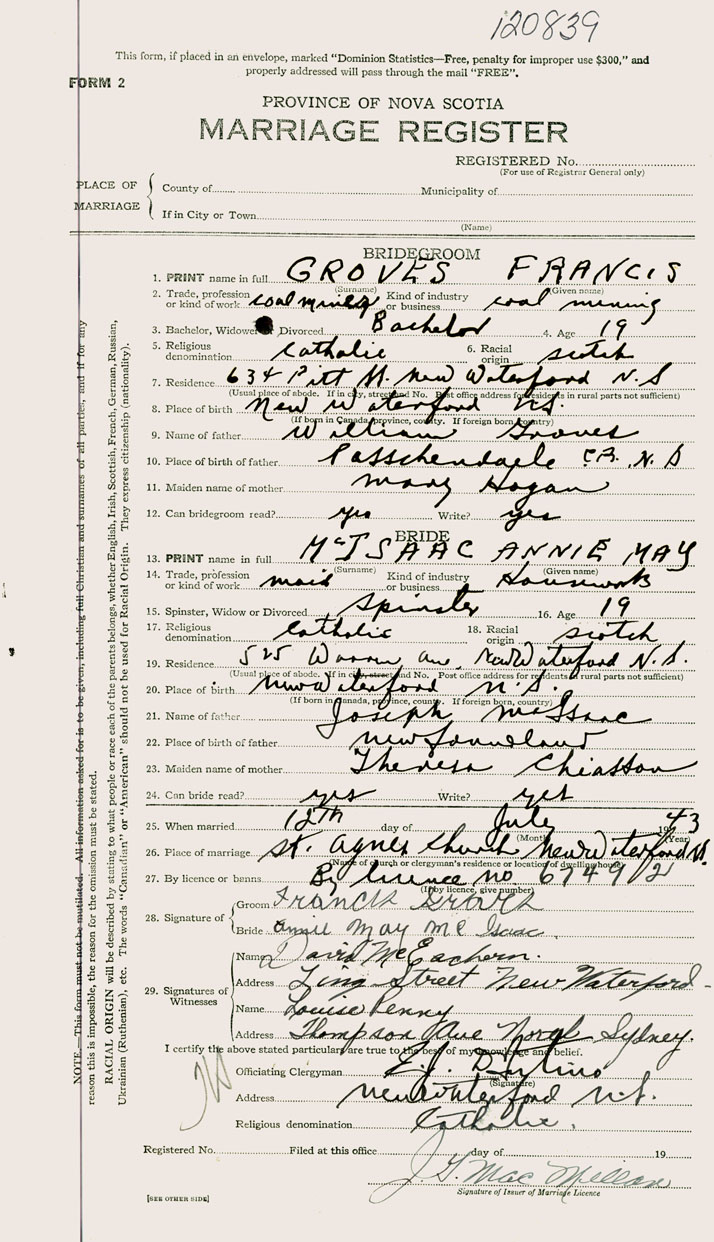 120839
This form, if placed in an envelope, marked "Dominion Statistics—Free, penalty for improper use $300," and
properly addressed will pass through the mail "FREE".
FORM 2
PROVINCE OF NOVA SCOTIA
MARRIAGE REGISTER
REGISTERED No.
(For use of Registrar General only)
PLACE OF MARRIAGE
County of Municipality of
If in City or Town
(Name)
BRIDEGROOM
1. PRINT name in full GROVES FRANCIS
(Surname) (Given name)
2. Trade, profession or kind of work coal mining Kind of industry or business coal mining
3. Bachelor, Widower or Divorced Bachelor 4. Age 19
5. Religious denomination Catholic 6. Racial origin scotch
7. Residence 634 Pitt St. New Waterford N.S
(Usual place of abode. If in city, street and No. Post office address for residents in rural parts not sufficient)
8. Place of birth New Waterford N.S.
(If born in Canada, province, county. If foreign born, country)
9. Name of father William Groves
10. Place of birth of father Passchendaele C.B. N.S
11. Maiden name of mother Mary Hogan
12. Can bridegroom read? yes Write? yes
BRIDE
13. PRINT name in full McISAAC ANNIE MAY
(Surname) (Given name)
14. Trade, profession or kind of work maid Kind of industry or business Housework
15. Spinster, Widow or Divorced Spinster 16. Age 19
17. Religious denomination Catholic 18. Racial origin scotch
19. Residence 525 Warren Ave, New Waterford N.S.
(Usual place of abode. If in city, street and No. Post office address for residents in rural parts not sufficient)
20. Place of birth New Waterford N.S.
(If born in Canada, province, county. If foreign born, country)
21. Name of father Joseph McIsaac
22. Place of birth of father newfoundland
23. Maiden name of mother Theresa Chiasson
24. Can bride read? yes Write? yes
25. When married 12th day of July 1943
(Month) (Year)
26. Place of marriage St. Agnes Church New Waterford N.S.
(Name of church or clergyman's residence or location of dwelling house)
27. By licence or banns By licence no 6749/2
(If by licence, give number)
28. Signature of Groom Francis Groves
Bride Annie May McIsaac
29. Signatures of Witnesses
Name David McEachern.
Address Ling Street New Waterford
Name Louise Penny
Address Thompson Ave North Sydney.
I certify the above stated particulars are true to the best of my knowledge and belief.
Officiating Clergyman
(Signature)
Address New Waterford N.S.
Religious denomination Catholic.
Registered No. Filed at this office day of 19
J. G. MacMillan
Signature of Issuer of Marriage Licence
[SEE OTHER SIDE]
NOTE.—This form must not be mutilated. All information asked for is to be given, including full Christian and surnames of all parties, and if for any
reason this is impossible, the reason for the omission must be stated.
RACIAL ORIGIN will be described by stating to what people or race each of the parents belongs, whether English, Irish, Scottish, French, German, Russian,
Ukrainian (Ruthenian), etc. The words "Canadian" or "American" should not be used for Racial Origin. They express citizenship (nationality).